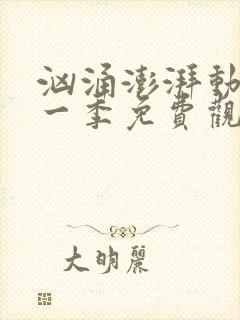 洶涌澎湃動
一季免費觀
大明麗